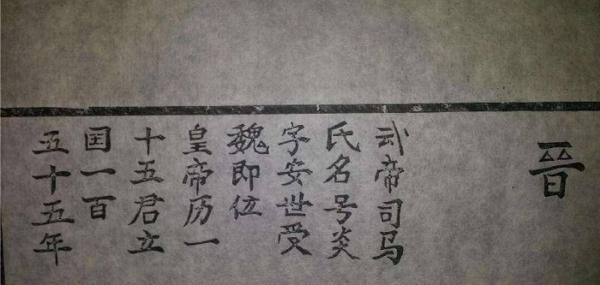 晉
武帝司马
氏名号炎
字安世受
魏即位
皇帝历一
十五君立
国一百
五十五年